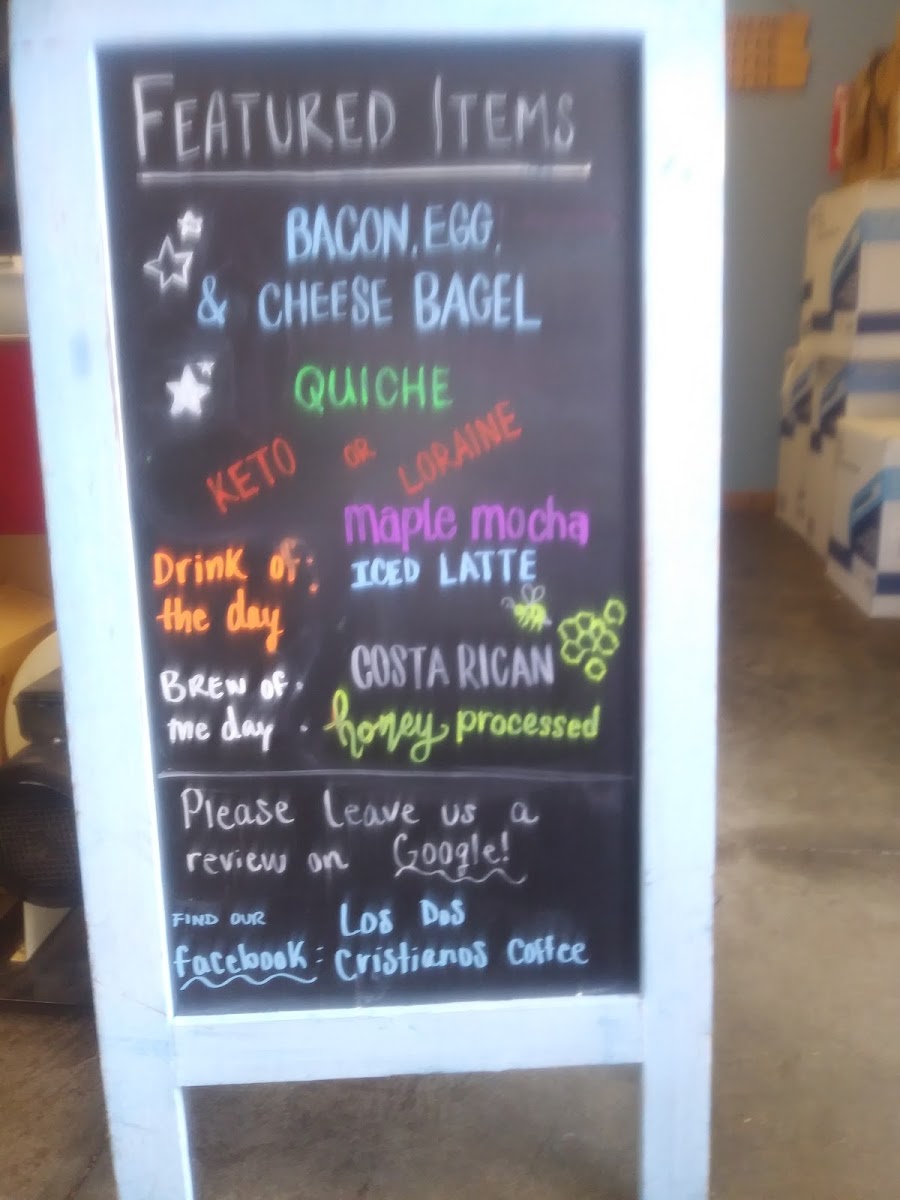 FEATURED ITEMS
BACON, EGG,
& CHEESE BAGEL
QUICHE
KETO OR LORAINE
Drink of :
the day
maple mocha
ICED LATTE
BREW OF :
the day
COSTA RICAN
honey processed
Please leave us a
review on Google!
FIND OUR
facebook :
Los Dos
Cristianos Coffee